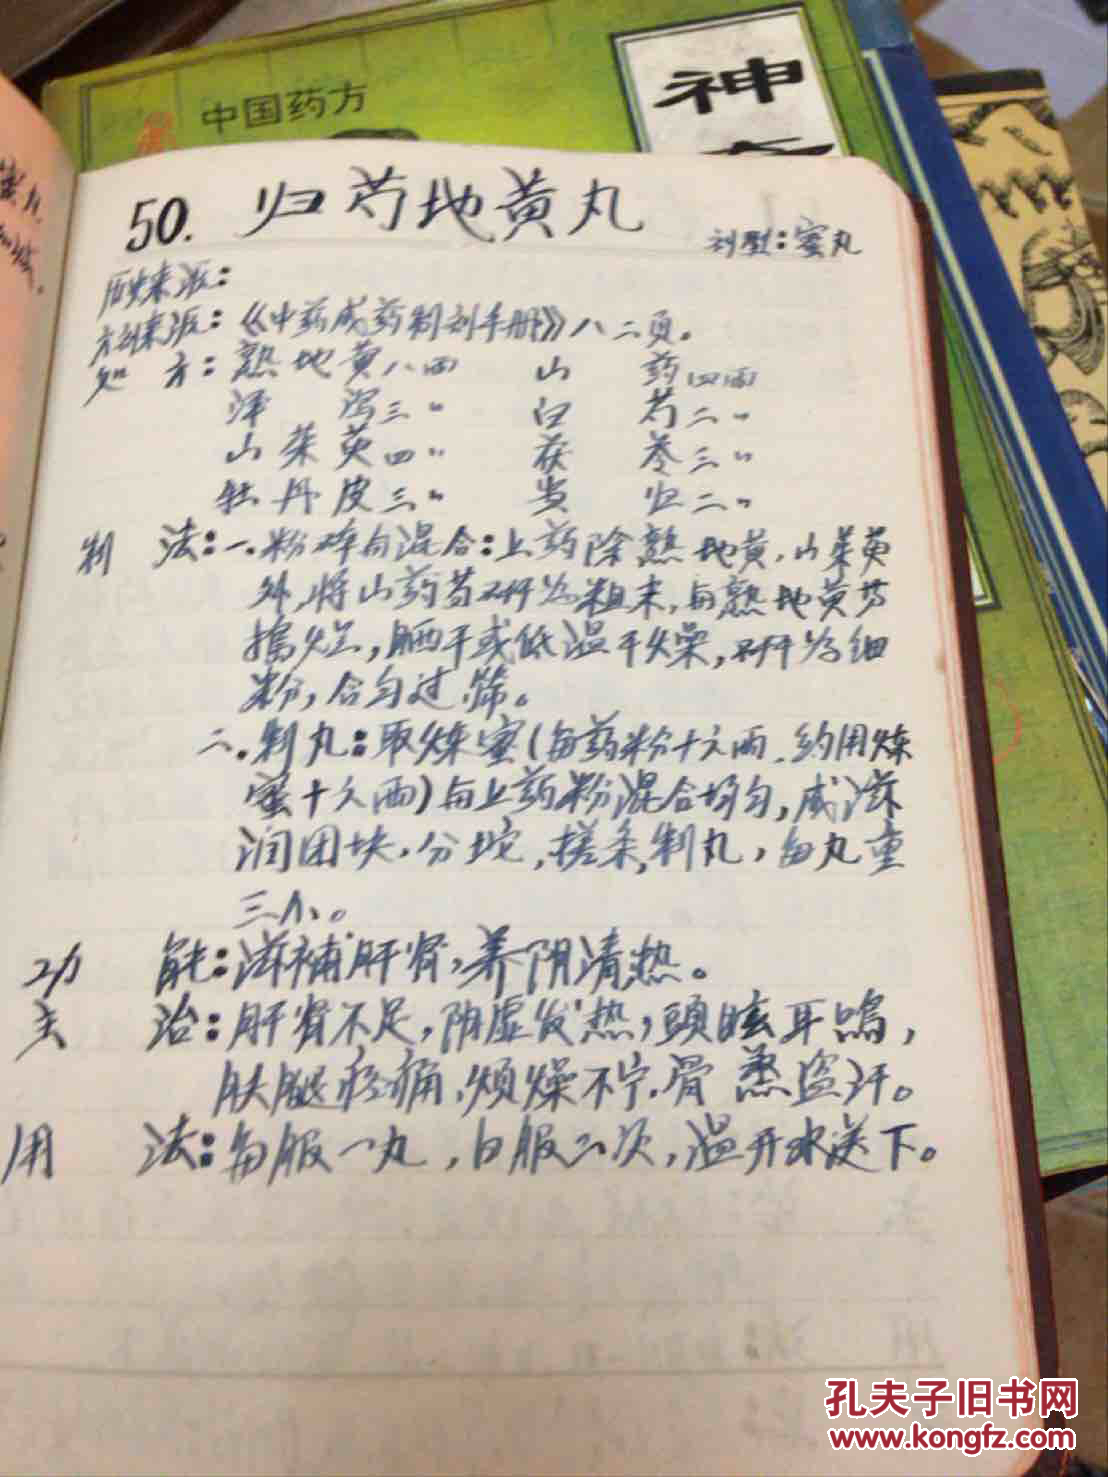 中国药方
神
50. 归芍地黄丸
剂型：蜜丸
历史来源：
方剂来源：《中药成药制剂手册》八二页。
处 方：熟地黄八两 山 药四两
泽 泻三〃 白 芍二〃
山茱萸四〃 茯 苓三〃
牡丹皮三〃 当 归二〃
制 法：一.粉碎与混合：上药除熟地黄，山茱萸
外，将山药等研为粗末，与熟地黄等
捣烂，晒干或低温干燥，研为细
粉，合匀过筛。
二.制丸：取炼蜜（每药粉十六两，约用炼
蜜十六两）与上药粉混合均匀，成滋
润团块，分坨，搓条，制丸，每丸重
三个。
功 能：滋補肝肾，养阴清热。
主 治：肝肾不足，阴虚发热，頭眩耳鳴，
腿疼痛，烦燥不宁，骨蒸盗汗。
用 法：每服一丸，日服二次，温开水送下。
孔夫子旧书网
www.kongfz.com